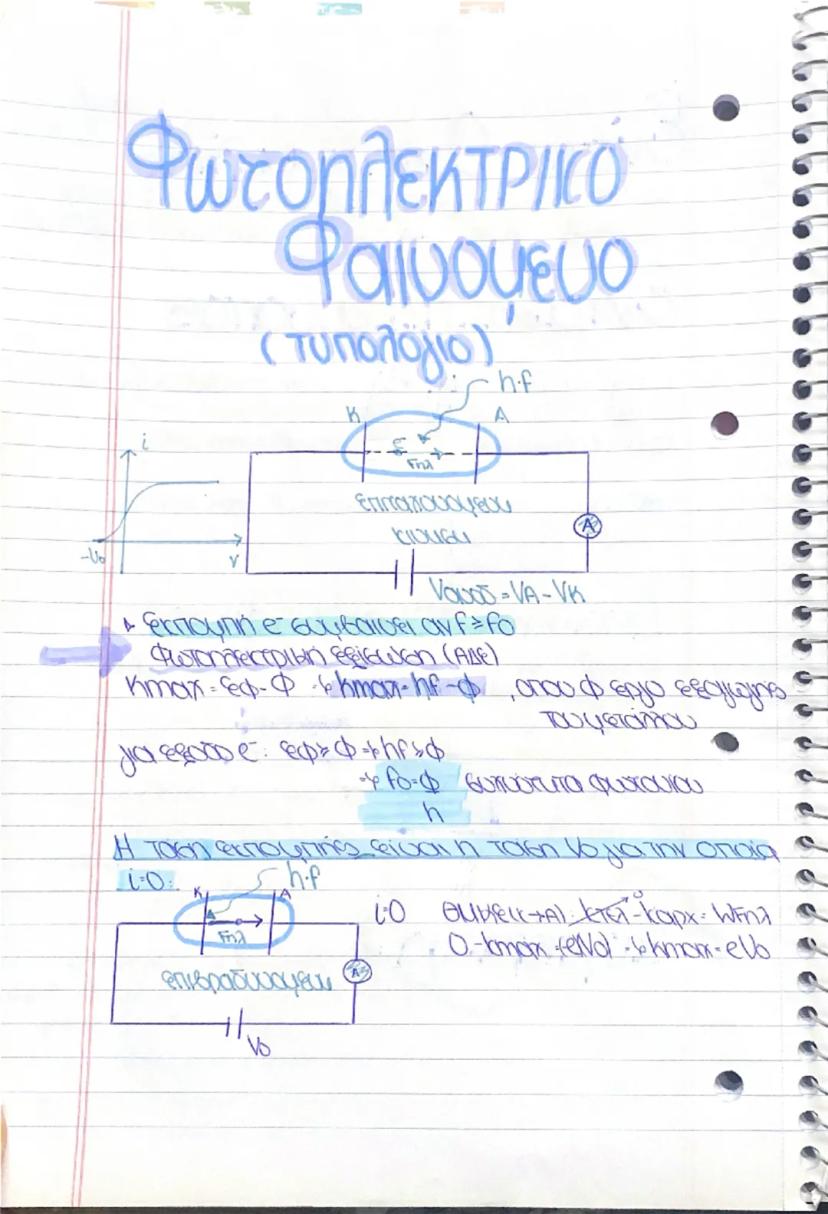 Φωτοηλεκτρικό
Φαινόμενο
(τυπολόγιο)
h·f
K A
i
Fηλ
επιταχυνόμενη
κίνηση
A
-V₀ V
Vανοδ = VA - VK
εκπομπή e⁻ συμβαίνει αν f ≥ f₀
Φωτοηλεκτρική εξίσωση (ΑΔΕ)
Kmax = Εφ - Φ → Kmax = hf - Φ , όπου Φ έργο εξαγωγής
του μετάλλου
για έξοδο e⁻: Εφ ≥ Φ → hf ≥ Φ
→ f₀ = Φ συχνότητα φωτονίου
h
Η τάση εκπομπής είναι η τάση V₀ για την οποία
i=0:
h·f
K A
i=0 ΘΜΚΕ(K→A) Kτελ⁰ - Kαρχ = WFηλ
Fηλ
0 - Kmax = (eV₀) → Kmax = eV₀
επιβραδυνόμενη
A
V₀